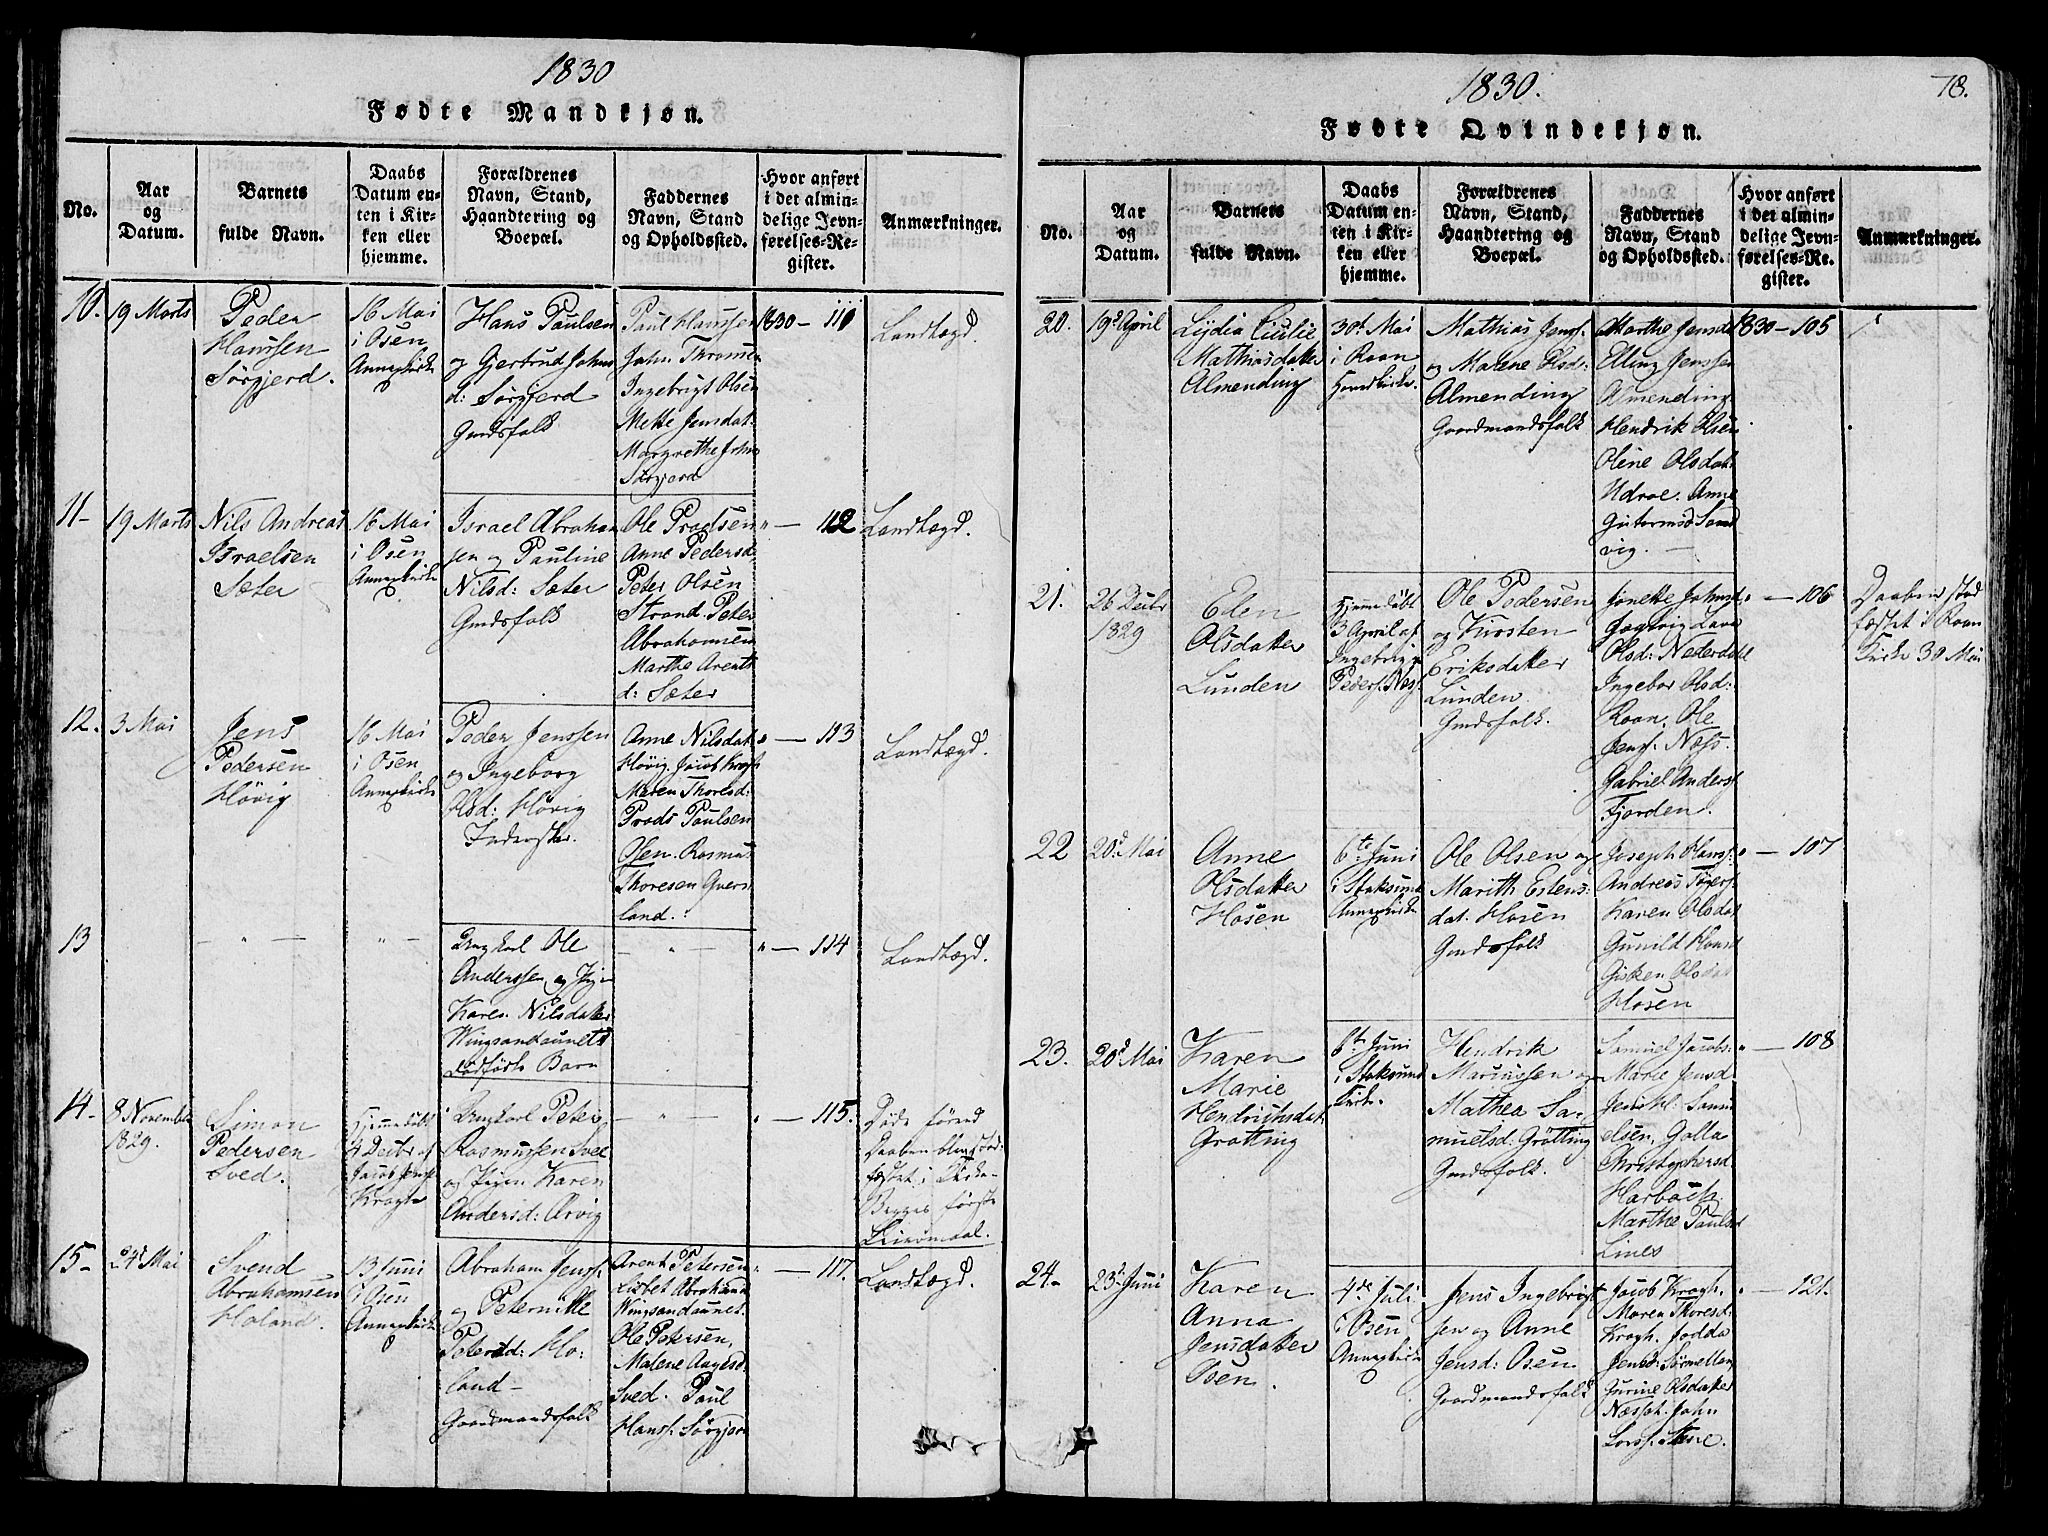 1830
Fødte Mandkjøn.
No.
Aar
og
Datum.
Barnets
fulde Navn.
Daabs
Datum en-
ten i Kir-
ken eller
hjemme.
Forældrenes
Navn, Stand,
Haandtering og
Boepæl.
Faddernes
Navn, Stand
og Opholdssted.
Hvor anført
i det almin-
delige Jevn-
førelses-Re-
gister.
Anmærkninger.
10.
19 Marts
Peder
Hanssen
Sørgjerd.
16 Mai
i Osen
Annexkirke
Hans Paulsen
og Gjertrud Johns
d: Sørgjerd
Gmdsfolk
Paul Hanssen
John Thomsen
Ingebrigt Olsen
Mette Jensdat:
Margrethe Johns
Sørgjerd
830 - 110
Landtægd.
11-
19 Marts
Nils Andreas
Israelsen
Sæter
16 Mai
i Osen
Annexkirke
Israel Abraham
sen og Pauline
Nilsd: Sæter
Gmdsfolk
Ole Pro​dsen
Anne Pedersd
Peter Olsen
Strand Peter
Abrahamsen
Marthe Arents
d: Sæter
" - 112
Landtægd.
12.
3 Mai
Jens
Pedersen
Høvig
16 Mai
i Osen
Annexkirke
Peder Jenssen
og Ingeborg
Olsd: Høvig
Inderster.
Anne Nilsdat:
Høvig. Jacob Krogh
Maren Thoresd:
Prods Paulsen
Osen. Rasmus
Thoresen Qvers
land.
" - 113
Landtægd.
13
- " -
" -
Ungkarl Ole
Anderssen og Pige
Karen Nilsdatter
Wingsandaunets
dødførte Barn
- " -
" - 114
Landtægd.
14-
8 November
1829.
Simon
Pedersen
Sved.
Hjemmedøbt
4 Decbr af
Jacob Jensen
Kragh
Ungkarl Peter
Rasmussen Sved
og Pigen Karen
Andersd: Arvig
- " -
" - 115.
Døde førend
Daaben blev stad-
fæstet i Kirken
Begges første
Leiermaal.
15-
24d Mai
Svend
Abrahamsen
Holand.
13 Juni
i Osen
Annexkirke
Abraham Jenss.
og Peternille
Petersd: Ho-
land-
Gaardmandsfolk
Arent Petersen
Lisbet Abraham
Wingsandaunet.
Ole Petersen,
Malene Aagesd
Sved. Paul
Hanss. Sørgjer
" - 117.
Landtægd.
1830.
78.
Fødte Qvindekjøn.
No.
Aar
og
Datum.
Barnets
fulde Navn.
Daabs
Datum en-
ten i Kir-
ken eller
hjemme.
Forældrenes
Navn, Stand,
Haandtering og
Boepæl.
Faddernes
Navn, Stand
og Opholdssted.
Hvor anført
i det almin-
delige Jevn-
førelses-Re-
gister.
Anmærkninger.
20.
19d April
Lydia Ciulie
Mathiasdatter
Almending
30d Mai
i Roan
Hovedkirke.
Mathias Jenss.
og Malene Olsd:
Almending
Gaardmandsfolk
Marthe Jensdat
Elling Jenssen
Almending
Hendrik Olsen
Oline Olsdat:
Udroe. Anne
Gutormsd Sand
vig. -
830 - 105
21.
26 Decbr
1829
Elen
Olsdatter
Lunden
Hjemmedøbt
3 April af
Ingebrigt
Peders. Næss
Ole Pedersen
og Kirsten
Eriksdatter
Lunden
Gmdsfolk.
Jonette Johnsd
Olsd: Nederdahl
Ingebor Olsd:
Roan. Ole
Jenss. Næss.
Gabriel Anders
Fjorden.
" - 106
Daaben stad
fæstet i Roan
Kirke 30 Mai
22
20d Mai
Anne
Olsdatter
Hosen
6te Juni
i Stoksund
Annexkirke
Ole Olsen og
Marith Estens
dat: Hosen
Gmdsfolk
Joseph Hanss.
Andreas Torgers.
Karen Olsdat
Gunild Hans
Gisken Olsdat
Hosen
" - 107
23.
20d Mai
Karen
Marie
Hendrichsdat.
Grøtting
6te Juni
i Stoksund
Kirke.
Hendrik
Mariussen og
Mathea Sa-
muelsd: Grøtting
Gmdsfolk.
Samuel Jacobs.
Marie Jensd
Samu
elsen, Golla
Christophersd.
Harbach.
Marthe Paulsd
Lines
" - 108
24-
23d Juni
Karen
Anna
Jensdatter
Osen.
4de Juli
i Osen
Annexkirke
Jens Ingebrigt
sen og Anne
Jensd: Osen
Gaardmandsfolk
Jacob Kragh.
Maren Thoresd:
Kragh. Jodda
Jensd: Sørmelland
Jurine Olsdatter
Næsset. John
Larss. Stene.
" - 121.